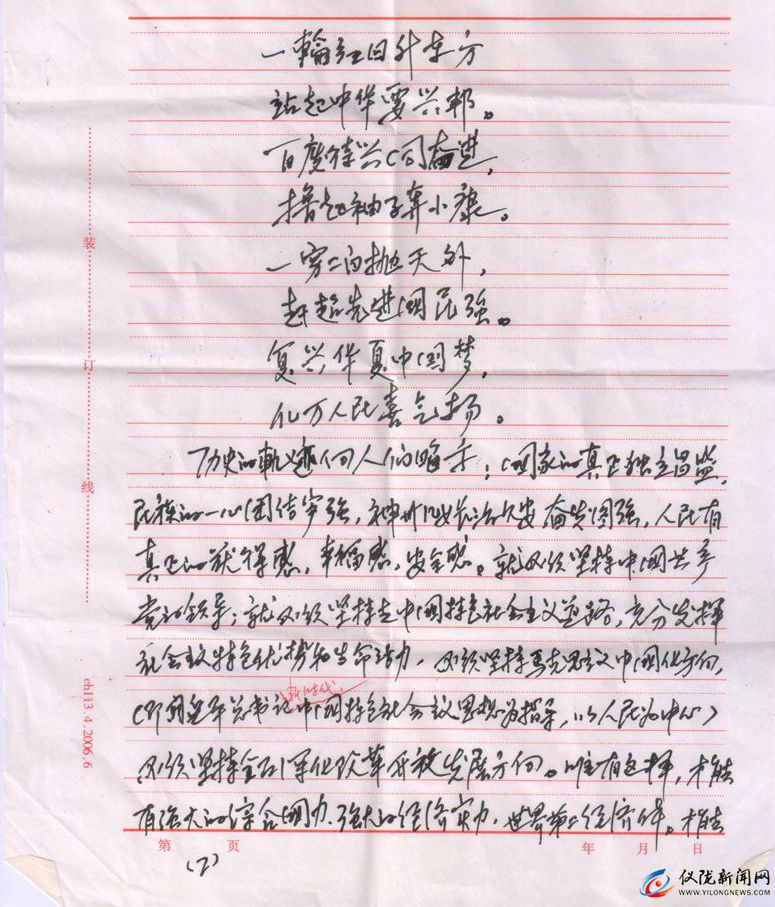 一輪红日升东方
站起中华要兴邦。
百废待兴同奋进,
撸起袖子奔小康。
一穷二白抛天外,
赶超先进国民强。
复兴华夏中国梦,
亿万人民喜气扬。
历史的轨迹向人们昭示;国家的真正独立昌盛,
民族的一心团结牢强,神州长治久安奋发图强,人民有
真正的获得感,幸福感,安全感。就必须坚持中国共产
党的领导;就必须坚持走中国特色社会主义道路,充分发挥
社会主义特色优势和生命活力,必须坚持马克思主义中国化方向,
新时代
(即习近平总书记中国特色社会主义思想为指导,以人民为中心)
必须坚持全面深化改革开放发展方向。唯有这样,才能
有强大的综合国力、强大的经济实力,世界第二经济体。才能
装
订
线
ch113.4.2006.6
第 页 年 月 日
(2)
仪陇新闻网
WWW.YILONGNEWS.COM